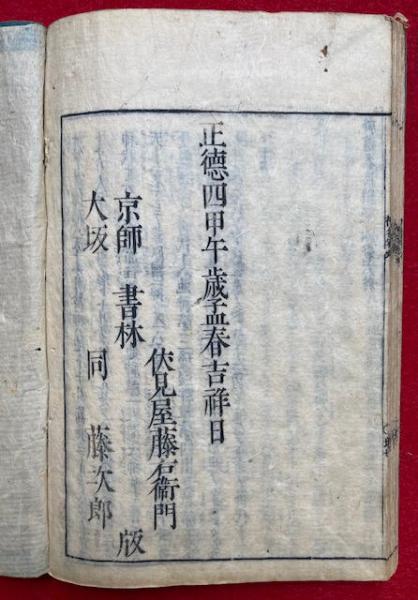 正德四甲午歳孟春吉祥日
伏見屋藤右衛門
京師 書林 版
大坂 同 藤次郎